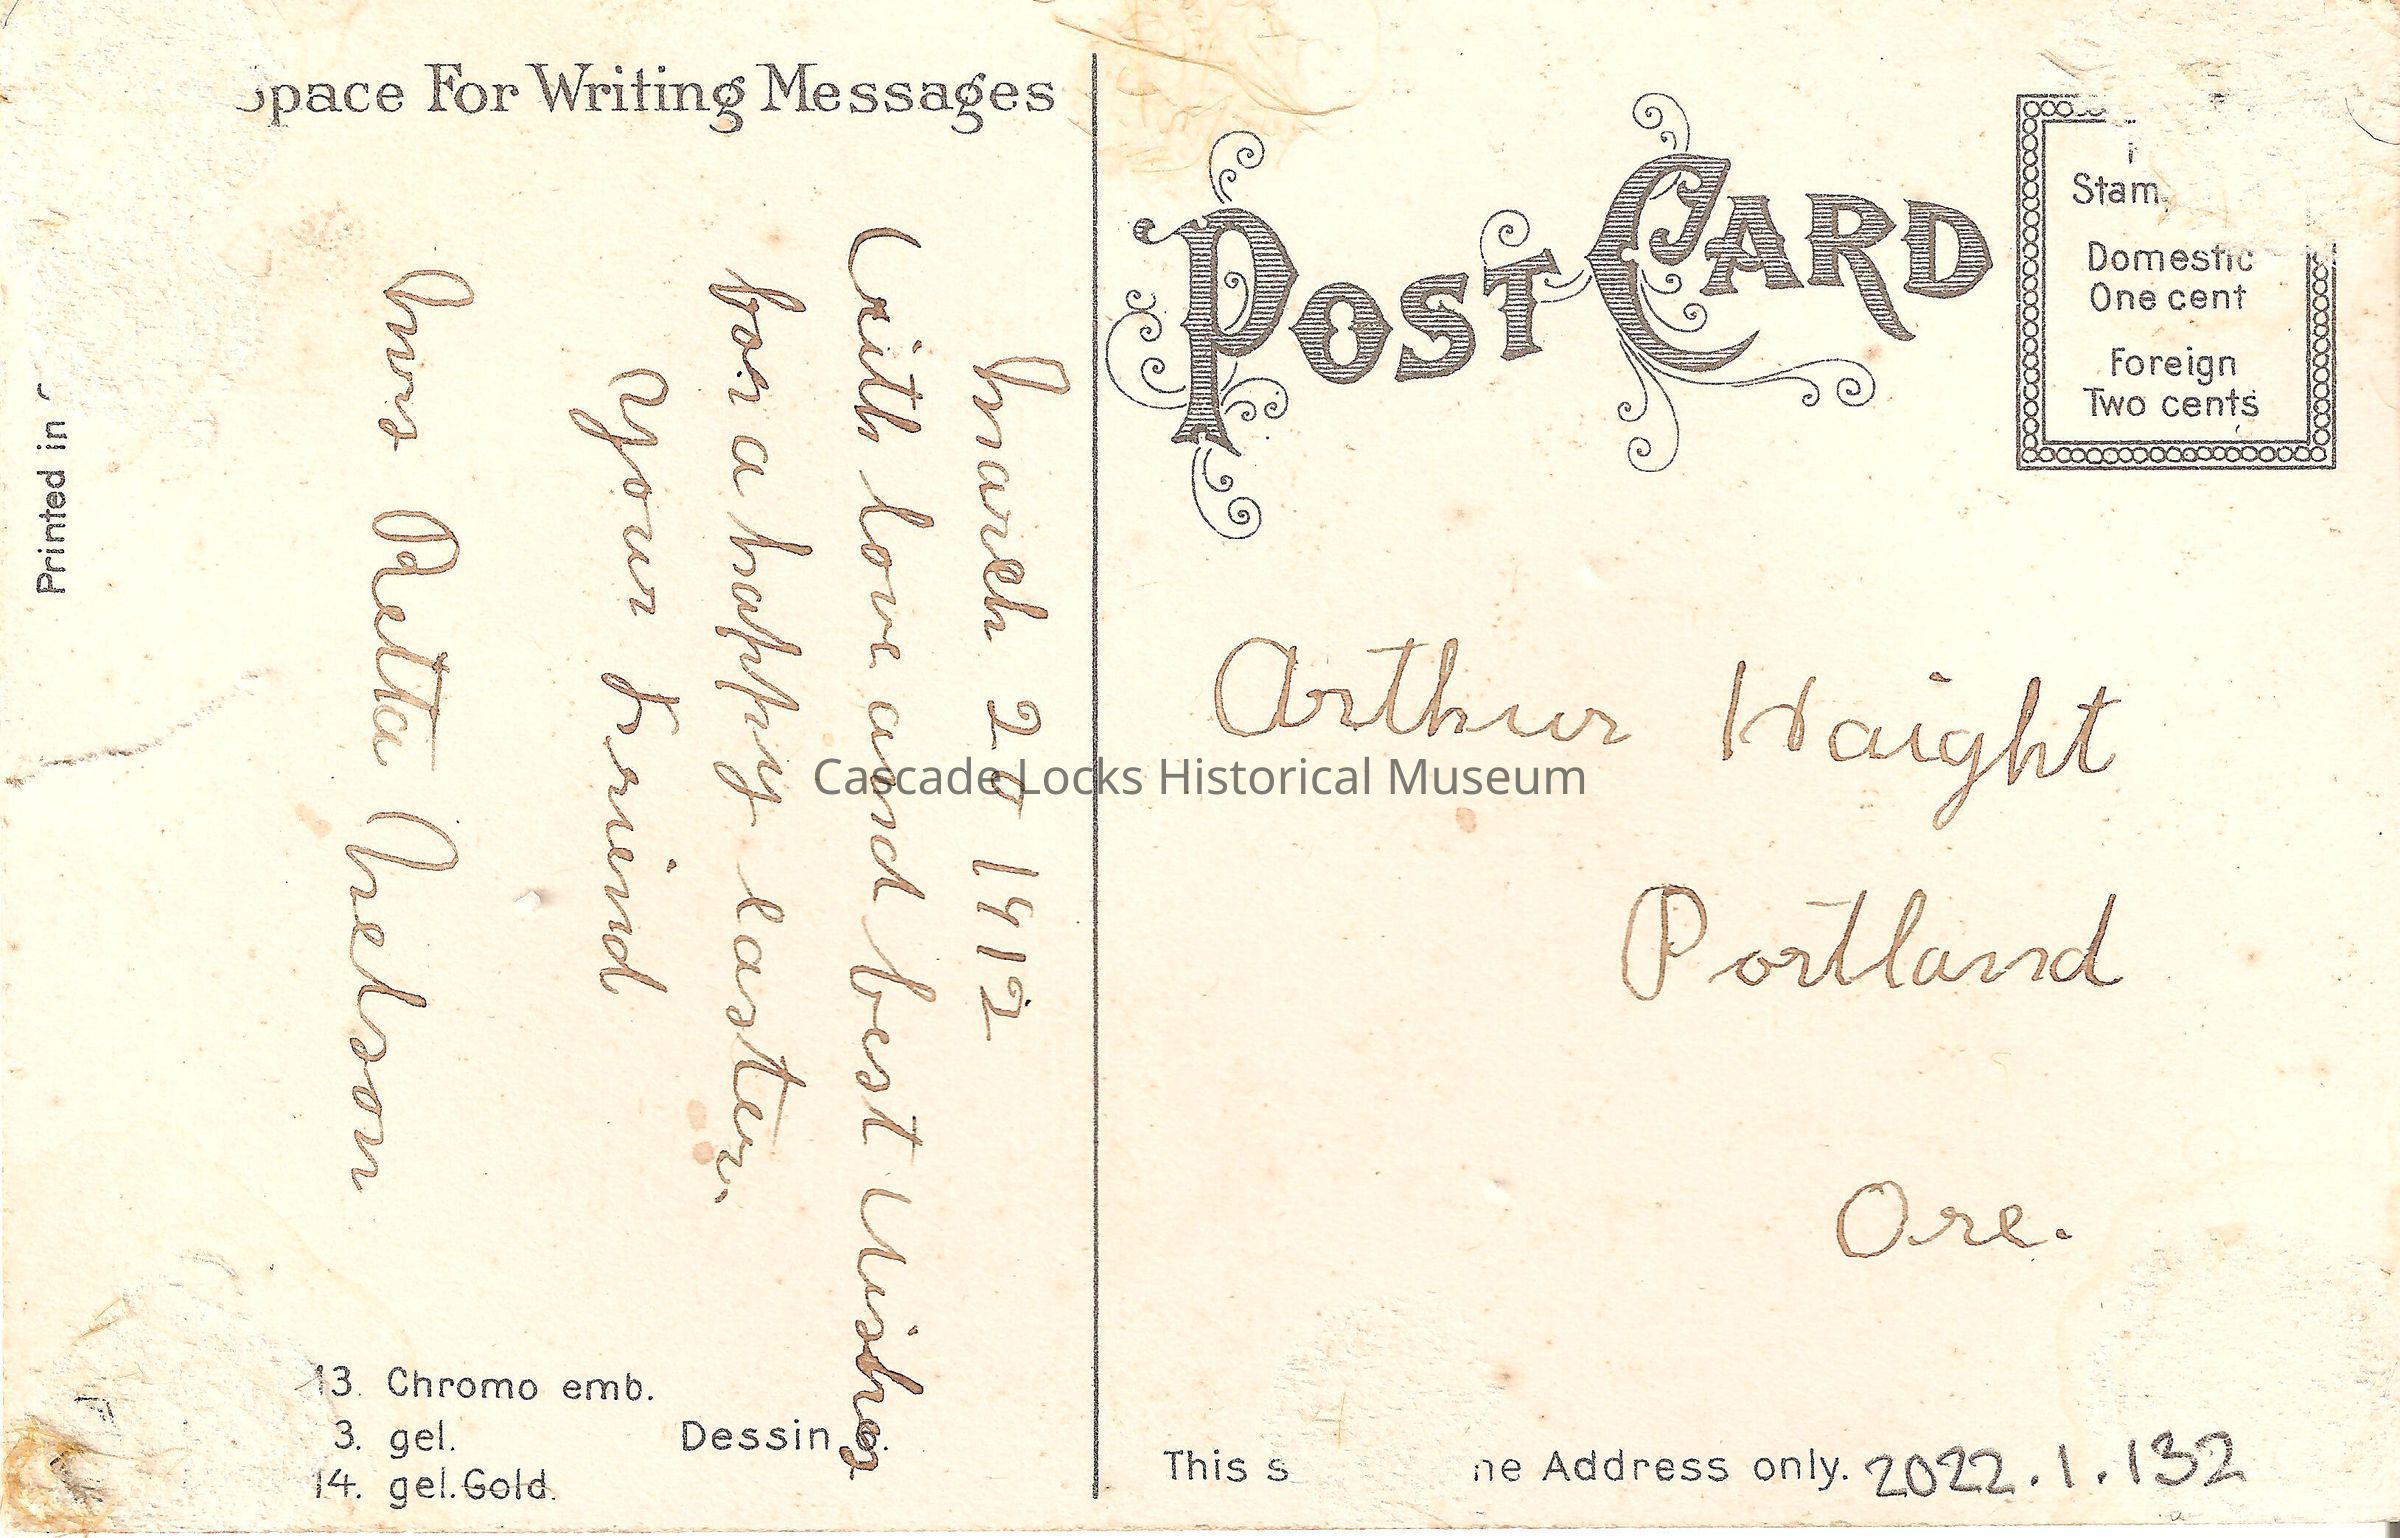 Space For Writing Messages
March 20 1912
With love and best wishes
for a happy easter.
Your friend
Mrs Retta Nelson
Printed in
13. Chromo emb.
3. gel.
14. gel. Gold.
Dessin
POST CARD
Stam
Domestic
One cent
Foreign
Two cents
Arthur Haight
Portland
Ore.
Cascade Locks Historical Museum
This s ne Address only.
2022.1.132